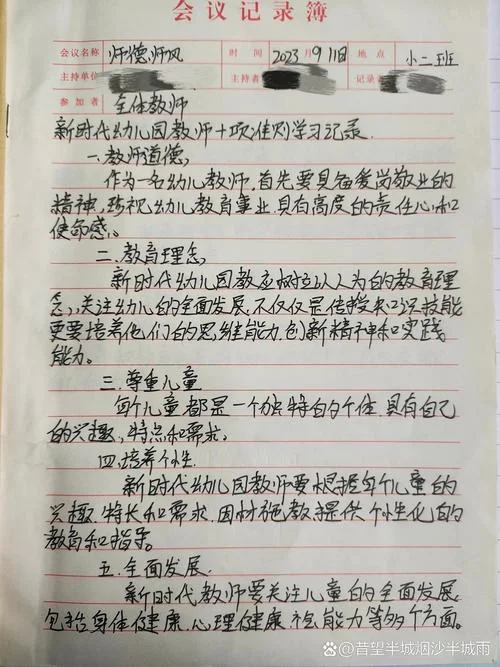 会议记录簿
会议名称 师德师风 时间 2023 9月11日 地点 小二班
主持单位 主持者 记录者
参加者 全体教师
新时代幼儿园教师十项准则学习记录.
一.教师道德,
作为一名幼儿教师,首先要具备爱岗敬业的
精神,珍视幼儿教育事业.具有高度的责任心和
使命感.
二.教育理念,
新时代幼儿园教应树立以人为的教育理
念,关注幼儿的全面发展.不仅仅是传授知识技能
更要培养他们的思维能力.创新精神和实践
能力。
三.尊重儿童
每个儿童都是一个独特的个体.具有自己
的兴趣,特点和需求。
四.培养个性.
新时代幼儿园教师要根据每个儿童的
兴趣.特长和需求.因材施教.提供个性化的
教育和指导。
五.全面发展.
新时代教师要关注儿童的全面发展,
包括身体健康,心理健康,能力等多个方面。
@昔望半城烟沙半城雨